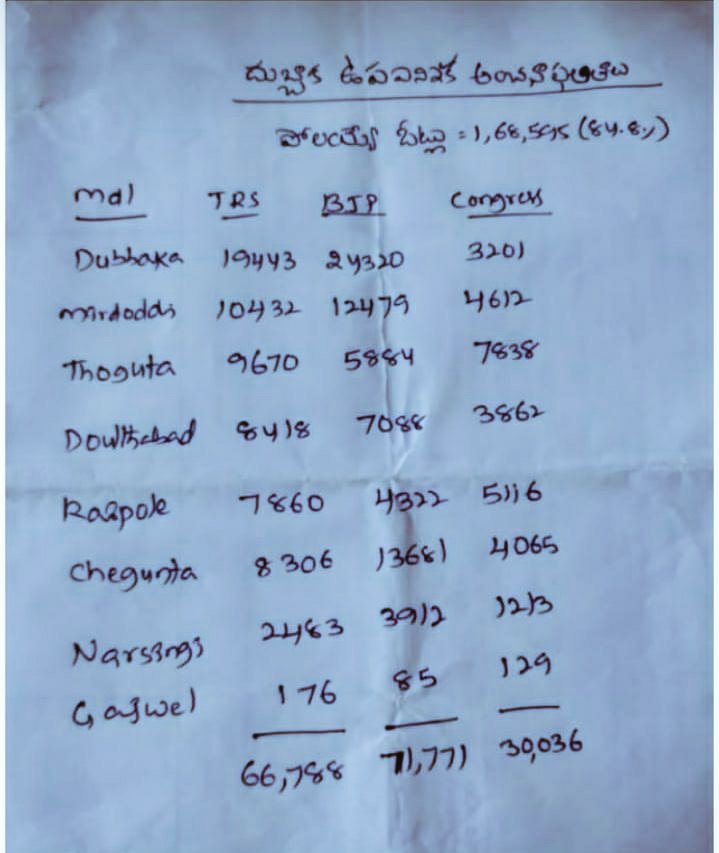 దుబ్బాక ఉపఎన్నిక అంచనాఫలితాలు
పోలయ్యే ఓట్లు = 1,68,595 (84.8%)
mdl TRS BJP Congress
Dubbaka 19443 24320 3201
mirdoddi 10432 12479 4612
Thoguta 9670 5884 7838
Dowlthabad 8418 7088 3862
Raipole 7860 4322 5116
Chegunta 8306 13681 4065
Narsingi 2483 3912 1213
Gajwel 176 85 129
66,788 71,771 30,036